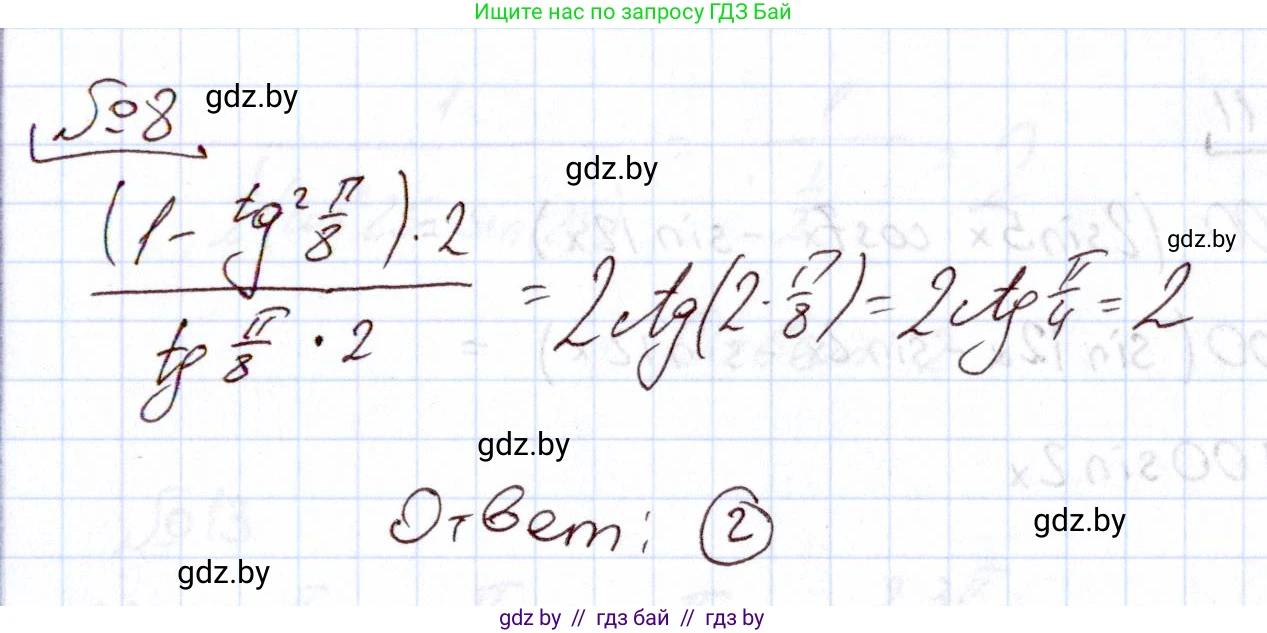 Ищите нас по запросу ГДЗ Бай
№8
gdz.by
gdz.by
gdz.by
(1 - tg² π/8) · 2 / tg π/8 · 2 = 2ctg(2 · π/8) = 2ctg π/4 = 2
gdz.by
Ответ: 2
gdz.by
gdz.by
gdz.by // гдз бай // гдз by